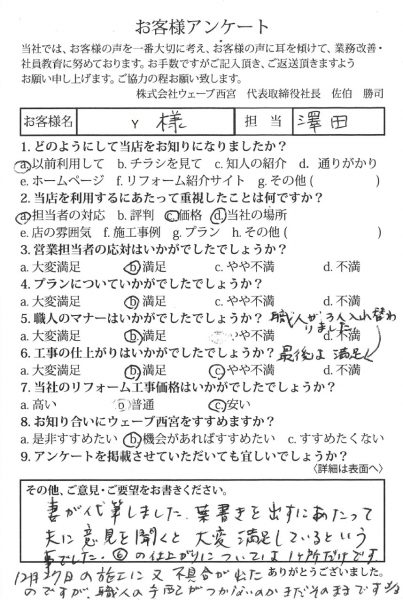 お客様アンケート
当社では、お客様の声を一番大切に考え、お客様の声に耳を傾けて、業務改善・
社員教育に努めております。お手数ですがご記入頂き、ご返送頂きますよう
お願い申し上げます。ご協力の程お願い致します。
株式会社ウェーブ西宮 代表取締役社長 佐伯 勝司
お客様名 Y 様 担当 澤田
1. どのようにして当店をお知りになりましたか?
a.以前利用して b. チラシを見て c. 知人の紹介 d. 通りがかり
e. ホームページ f. リフォーム紹介サイト g. その他 ( )
2. 当店を利用するにあたって重視したことは何ですか?
a.担当者の対応 b. 評判 c.価格 d.当社の場所
e. 店の雰囲気 f. 施工事例 g. プラン h. その他 ( )
3. 営業担当者の応対はいかがでしたでしょうか?
a. 大変満足 b.満足 c. やや不満 d. 不満
4. プランについていかがでしたでしょうか?
a. 大変満足 b.満足 c. やや不満 d. 不満
5. 職人のマナーはいかがでしたでしょうか? 職人が3人入れ替わ
りました
a. 大変満足 b.満足 やや不満 d. 不満
6. 工事の仕上がりはいかがでしたでしょうか? 最後は満足
a. 大変満足 b.満足 c.やや不満 d. 不満
7. 当社のリフォーム工事価格はいかがでしたでしょうか?
a. 高い b普通 c.安い
8. お知り合いにウェーブ西宮をすすめますか?
a. 是非すすめたい b.機会があればすすめたい c. すすめたくない
9. アンケートを掲載させていただいても宜しいでしょうか?
〈詳細は表面へ〉
その他、ご意見・ご要望をお書きください。
妻が代筆しました。葉書きを出すにあたって
夫に意見を聞くと大変満足しているという
事でした。⑥の仕上がりについては1ヶ所だけです
ありがとうございました。
12月27日の施工に又不具合が出た
のですが、職人の手配がつかないのかまだそのままです